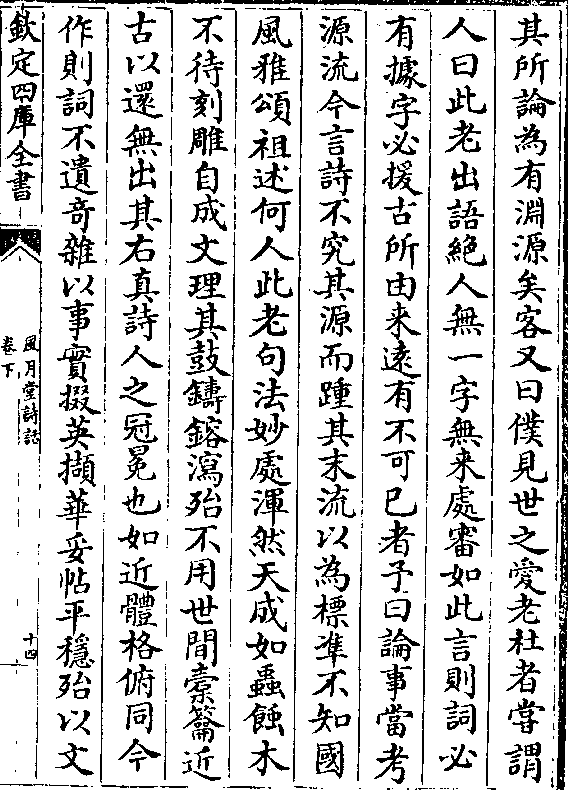 其所論為有淵源矣客又曰僕見世之愛老杜者嘗謂
人曰此老出語絕人無一字無来處審如此言則詞必
有據字必援古所由来遠有不可已者予曰論事當考
源流今言詩不究其源而踵其末流以為標準不知國
風雅頌祖述何人此老句法妙處渾然天成如蟲蝕木
不待刻雕自成文理其鼓鑄鎔瀉殆不用世間橐籥近
古以還無出其右真詩人之冠冕也如近體格俯同今
作則詞不遺竒雜以事實掇英擷華妥帖平穩殆以文
欽定四庫全書
風月堂詩話
卷下
十四